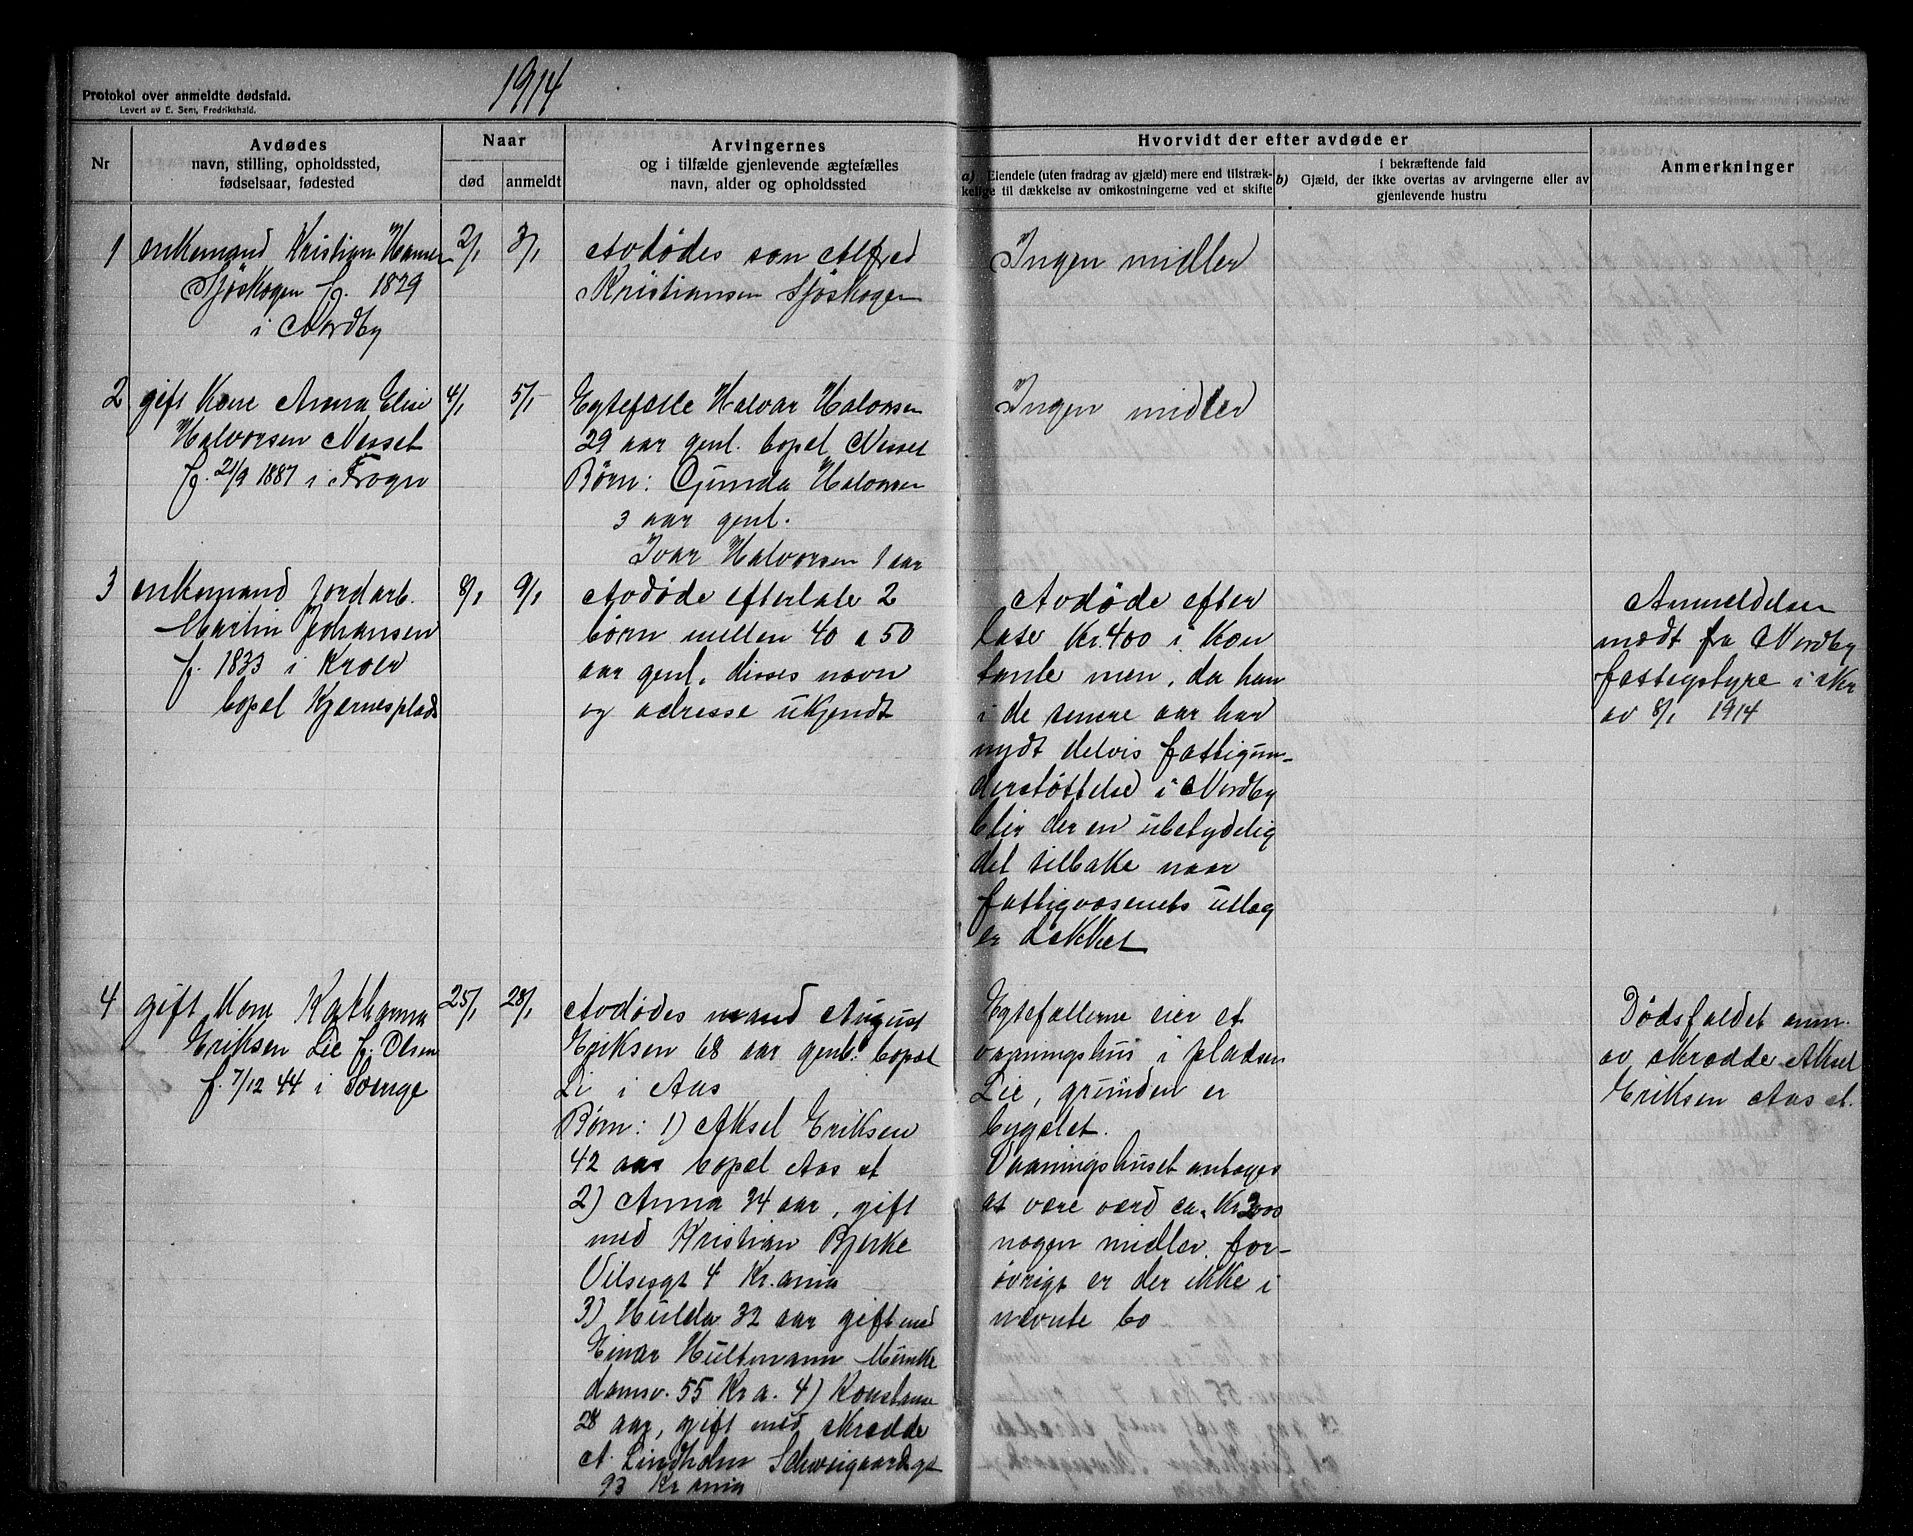 1914
Protokol over anmeldte dødsfald.
Levert av E. Sem, Fredrikshald.
Nr
Avdødes
navn, stilling, opholdssted,
fødselsaar, fødested
Naar
død
anmeldt
Arvingernes
og i tilfælde gjenlevende ægtefælles
navn, alder og opholdssted
Hvorvidt der efter avdøde er
a) Eiendele (uten fradrag av gjæld) mere end tilstræk-
kelige til dækkelse av omkostningerne ved et skifte
i bekræftende fald
b) Gjæld, der ikke overtas av arvingerne eller av
gjenlevende hustru
Anmerkninger
1
enkemand Kristian Hansen
Sjöskogen f. 1829
i Nordby
2/1
3/1
Avdødes søn Alfred
Kristiansen Sjöskogen
Ingen midler
2
gift Kone Anna Elise
Halvorsen Nesset
f. 21/9 1887 i Frogn
4/1
5/1
Egtefælle Halvar Halvorsen
29 aar genl. bopæl Nesset
Børn: Gunda Halvorsen
3 aar genl.
Ivar Halvorsen 1 aar
Ingen midler
3
enkemand Jordarb.
Martin Johansen
f. 1833 i Kroer
bopæl Kjærnesplads
8/1
9/1
Avdøde efterlate 2
børn mellen 40 a 50
aar genl. disses navn
og adresse ukjendt
Avdøde efter
later Kr. 400 i Kon
tante men, da han
i de senere aar har
nydt delvis fattigun-
derstöttelse i Nordby
blir der en ubetydelig
det tilbake naar
fattigvæsenets utlæg
er dækket
Anmeldelsen
mødt fra Nordby
fattigstyre i skr
av 8/1 1914
4
gift Kone Katharina
Eriksen Lie f. Olsen
f. 7/12 44 i Sverige
25/1
28/1
Avdødes mand August
Eriksen 68 aar genl. bopæl
Li i Aas
Børn: 1) Aksel Eriksen
42 aar bopæl Aas st
2) Anna 34 aar, gift
med Kristian Bjerke
Vilsesgt 4 Kr.ania
3) Hulda 32 aar gift med
Einar Hultmann Munke
damsv. 55 Kr a. 4) Konstanse
28 aar, gift med skrædde
A. Lindholm Schweigaardsgt
93 Kr ania
Egtefællerne eier et
vaaningshus i pladsen
Lie, grunden er
bygslet.
Vaaningshuset antages
at være værd ca. Kr 2000
nogen midler for-
övrigt er der ikke i
nævnte bo
Dødsfaldet anm.
av skrædde Aksel
Eriksen Aas st.